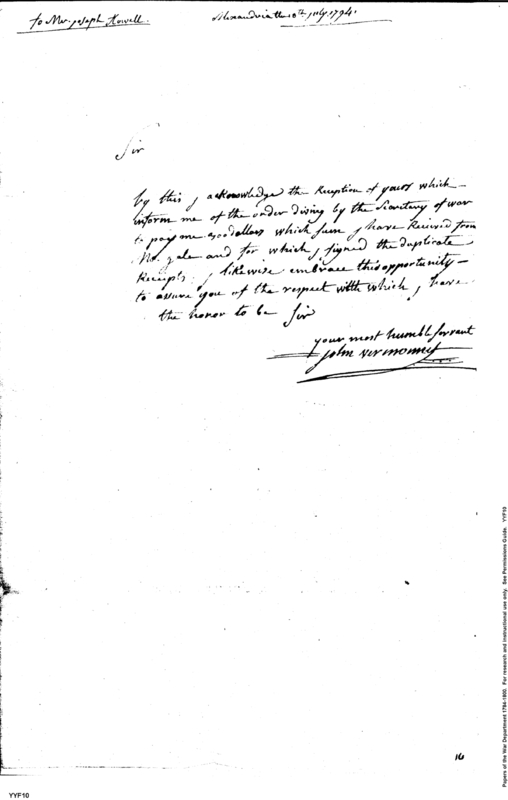 to Mr. joseph Howell.
Alexandria the 10th july. 1794.
Sir
by this j acknowledge the Reception of yours which
inform me of the order diving by the Secretary of war
to pay me dollars which sum j have Received from
Mr. yale and for which j signed the duplicate
Receipts. j likewise embrace this opportunity
to assure you of the respect with which j have
the honor to be Sir
your most humble servant
john vermonnet
16
YYF10
Papers of the War Department 1784-1800. For research and instructional use only. See Permissions Guide. YYF10